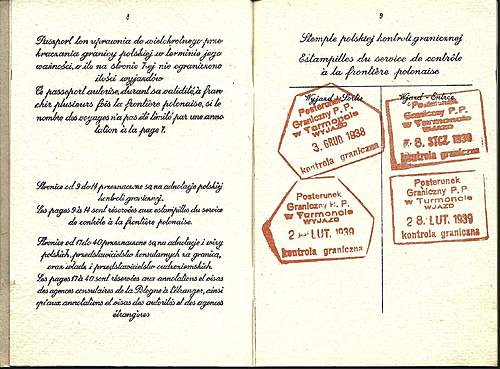 8
Paszport ten uprawnia do wielokrotnego prze-
kraczania granicy polskiej w terminie jego
ważności, o ile na stronie 7-ej nie ograniczono
ilości wyjazdów
Ce passeport autorise, durant sa validité, à fran-
chir plusieurs fois la frontière polonaise, si le
nombre des voyages n'a pas été limité par une anno-
tation à la page 7.
Stronice od 9 do 14 przeznaczone są na adnotacje polskiej
kontroli granicznej.
Les pages 9 à 14 sont réservées aux estampilles du service
de contrôle à la frontière polonaise.
Stronice od 17 do 40 przeznaczone są na adnotacje i wizy
polskich, przedstawicielstw konsularnych za granicą,
oraz władz i przedstawicielstw cudzoziemskich.
Les pages 17 à 40 sont réservées aux annotations et visas
des agences consulaires de la Pologne à l'étranger, ainsi
qu'aux annotations et visas des autorités et des agences
étrangères
9
Stemple polskiej kontroli granicznej
Estampilles du service de contrôle
à la frontière polonaise
Wyjazd - Sortie
Posterunek
Graniczny P. P.
w Turmoncie
WYJAZD
3. GRUD 1938
kontrola graniczna
Wjazd - Entrée
Posterunek
Graniczny P. P.
w Turmoncie
WJAZD
8. STCZ 1939
kontrola graniczna
Posterunek
Graniczny P. P.
w Turmoncie
WYJAZD
2 LUT. 1939
kontrola graniczna
Posterunek
Graniczny P. P.
w Turmoncie
WJAZD
28. LUT. 1939
kontrola graniczna